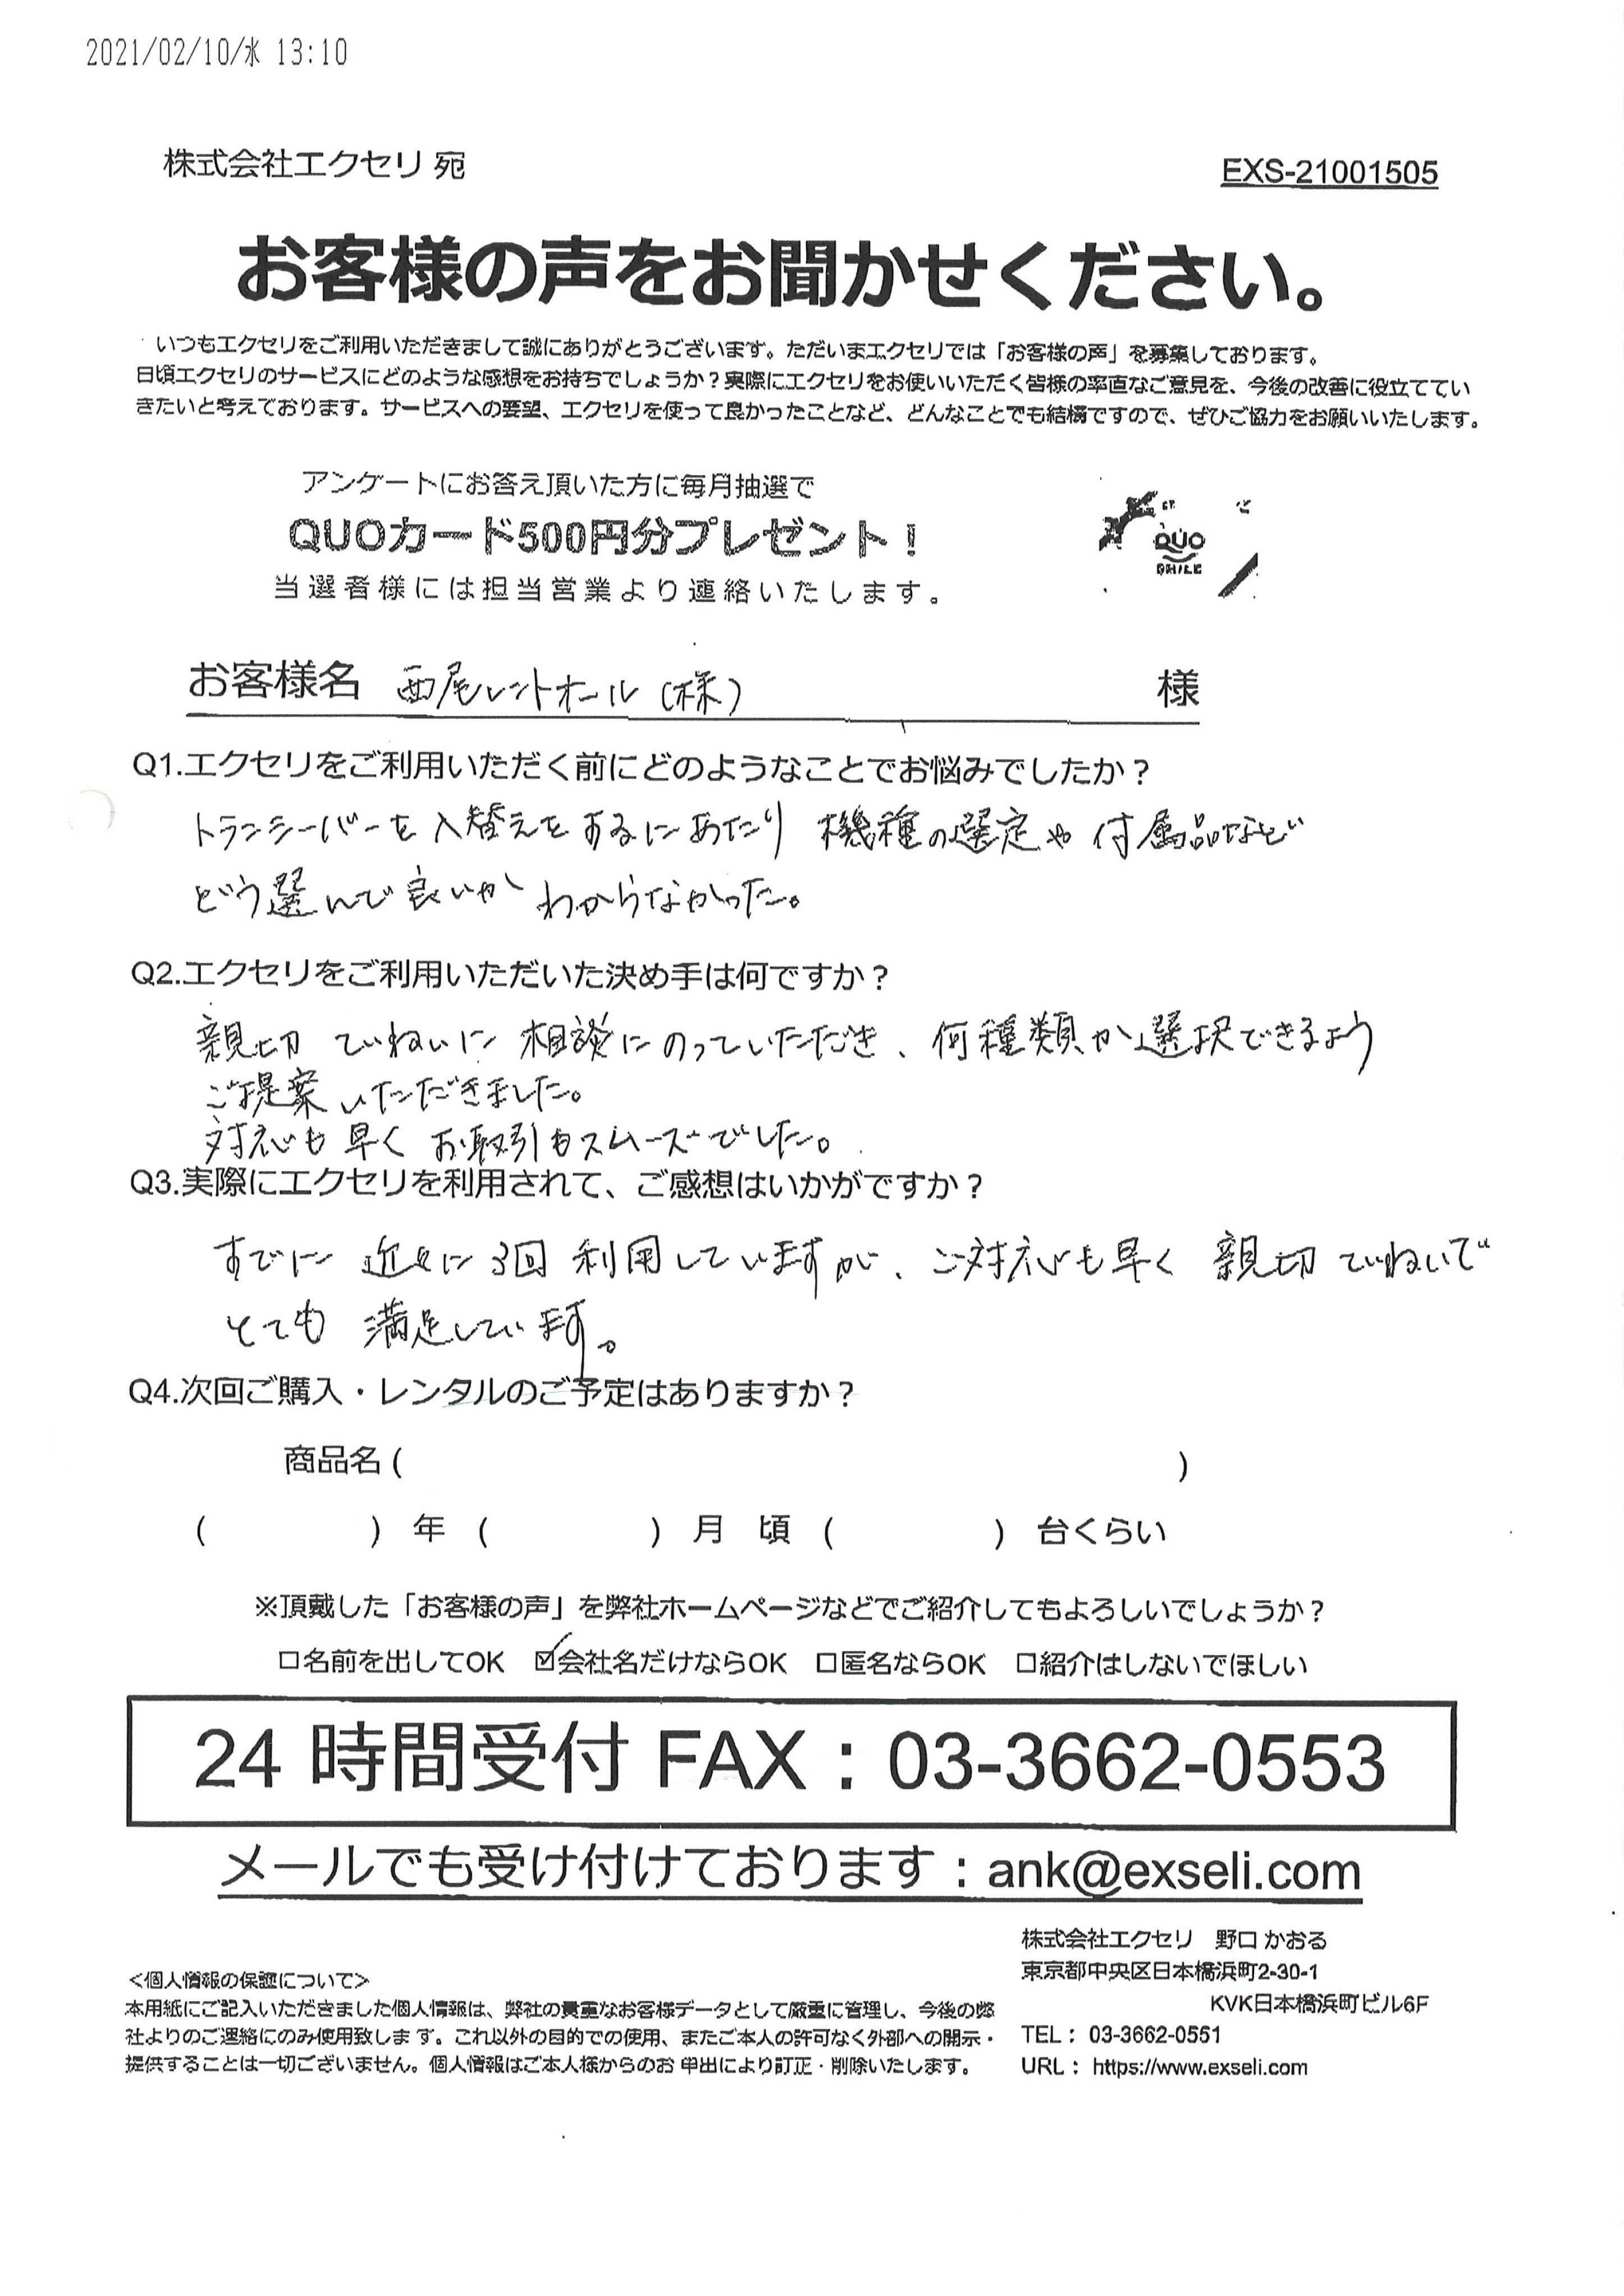 2021/02/10/水 13:10
株式会社エクセリ 宛
EXS-21001505
お客様の声をお聞かせください。
いつもエクセリをご利用いただきまして誠にありがとうございます。ただいまエクセリでは「お客様の声」を募集しております。
日頃エクセリのサービスにどのような感想をお持ちでしょうか？実際にエクセリをお使いいただく皆様の率直なご意見を、今後の改善に役立ててい
きたいと考えております。サービスへの要望、エクセリを使って良かったことなど、どんなことでも結構ですので、ぜひご協力をお願いいたします。
アンケートにお答え頂いた方に毎月抽選で
QUOカード500円分プレゼント！
当選者様には担当営業より連絡いたします。
QUO
SMILE
お客様名 西尾レントオール(株) 様
Q1.エクセリをご利用いただく前にどのようなことでお悩みでしたか？
トランシーバーを入替えをするにあたり 機種の選定や付属品など
どう選んで良いか わからなかった。
Q2.エクセリをご利用いただいた決め手は何ですか？
親切 ていねいに 相談にのっていただき、何種類か選択できるよう
ご提案いただきました。
対応も早く お取引もスムーズでした。
Q3.実際にエクセリを利用されて、ご感想はいかがですか？
すでに 近々に3回 利用していますが、ご対応も早く 親切 ていねいで
とても 満足しています。
Q4.次回ご購入・レンタルのご予定はありますか？
商品名 ( )
( ) 年 ( ) 月 頃 ( ) 台くらい
※頂戴した「お客様の声」を弊社ホームページなどでご紹介してもよろしいでしょうか？
□名前を出してOK ☑会社名だけならOK □匿名ならOK □紹介はしないでほしい
24 時間受付 FAX：03-3662-0553
メールでも受け付けております：ank@exseli.com
株式会社エクセリ 野口 かおる
東京都中央区日本橋浜町2-30-1
KVK日本橋浜町ビル6F
TEL： 03-3662-0551
URL： https://www.exseli.com
＜個人情報の保護について＞
本用紙にご記入いただきました個人情報は、弊社の貴重なお客様データとして厳重に管理し、今後の弊
社よりのご連絡にのみ使用致します。これ以外の目的での使用、またご本人の許可なく外部への開示・
提供することは一切ございません。個人情報はご本人様からのお申出により訂正・削除いたします。